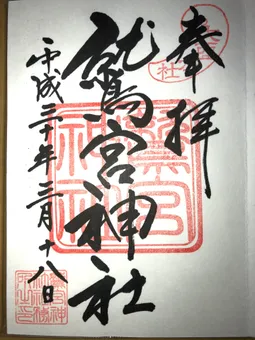 奉拝
鷲宮神社
平成三十年三月十八日
鷲宮
神社